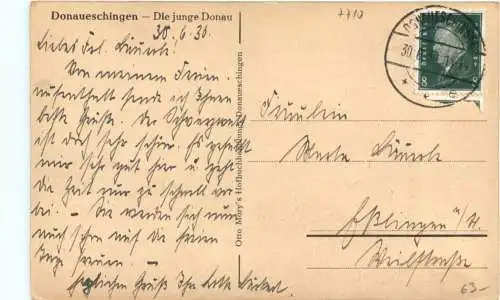 Donaueschingen — Die junge Donau
30.6.30.
Liebes Frl. Bäuerle!
Von meinem Ferien-
aufenthalt sende ich Ihnen
beste Grüße. Der Schwarzwald
ist doch sehr schön. Es gefällt
mir sehr gut hier u. geht
die Zeit nur zu schnell vor-
bei. – Sie werden sich nun
auch schon auf die Ferien-
tage freuen. –
Herzlichen Gruß Ihre
Otto Mory's Hofbuchhandlung, Donaueschingen
7710
DONAUESCHINGEN
30.
8
Fräulein
Bäuerle
Eßlingen a/N.
Weilstraße
63-